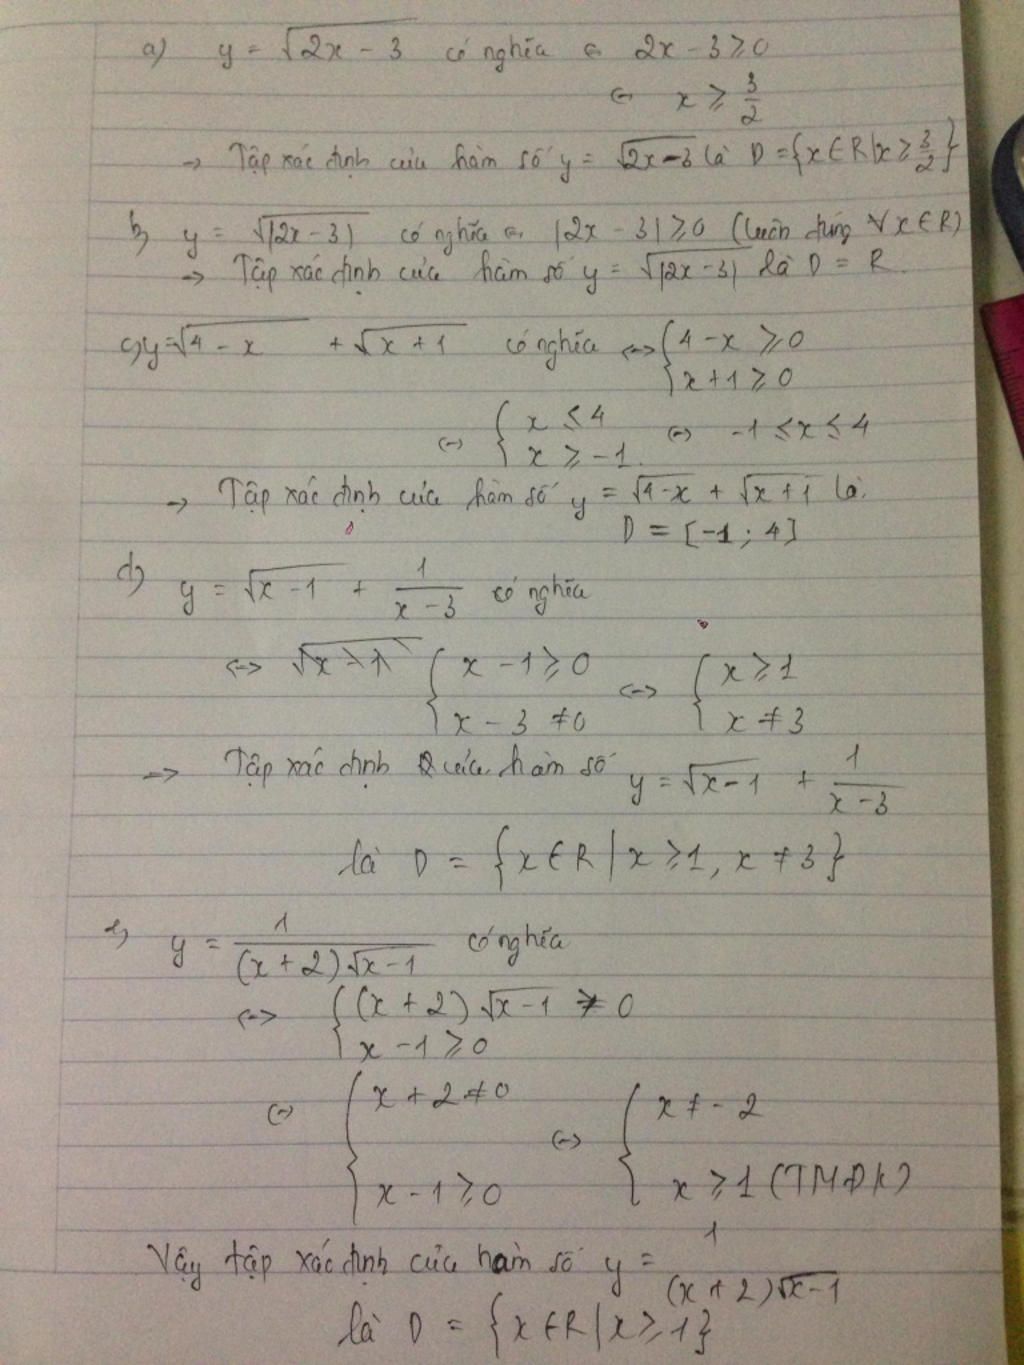 a) y = √(2x - 3) có nghĩa ⇔ 2x - 3 ≥ 0
⇔ x ≥ 3/2
→ Tập xác định của hàm số y = √(2x-3) là D = {x ∈ R | x ≥ 3/2}
b) y = √|2x-3| có nghĩa ⇔ |2x - 3| ≥ 0 (luôn đúng ∀x ∈ R)
→ Tập xác định của hàm số y = √|2x-3| là D = R.
c) y = √(4-x) + √(x+1) có nghĩa ⇔ { 4-x ≥ 0
x+1 ≥ 0
⇔ { x ≤ 4 ⇔ -1 ≤ x ≤ 4
x ≥ -1.
→ Tập xác định của hàm số y = √(4-x) + √(x+1) là.
D = [-1; 4]
d) y = √(x-1) + 1/(x-3) có nghĩa
⇔ { x - 1 ≥ 0 ⇔ { x ≥ 1
x - 3 ≠ 0 x ≠ 3
→ Tập xác định của hàm số y = √(x-1) + 1/(x-3)
là D = {x ∈ R | x ≥ 1, x ≠ 3}
e) y = 1/((x+2)√(x-1)) có nghĩa
⇔ { (x+2)√(x-1) ≠ 0
x - 1 ≥ 0
⇔ { x + 2 ≠ 0 ⇔ { x ≠ -2
x - 1 ≥ 0 x ≥ 1 (TMĐK)
Vậy tập xác định của hàm số y = 1/((x+2)√(x-1))
là D = {x ∈ R | x ≥ 1}